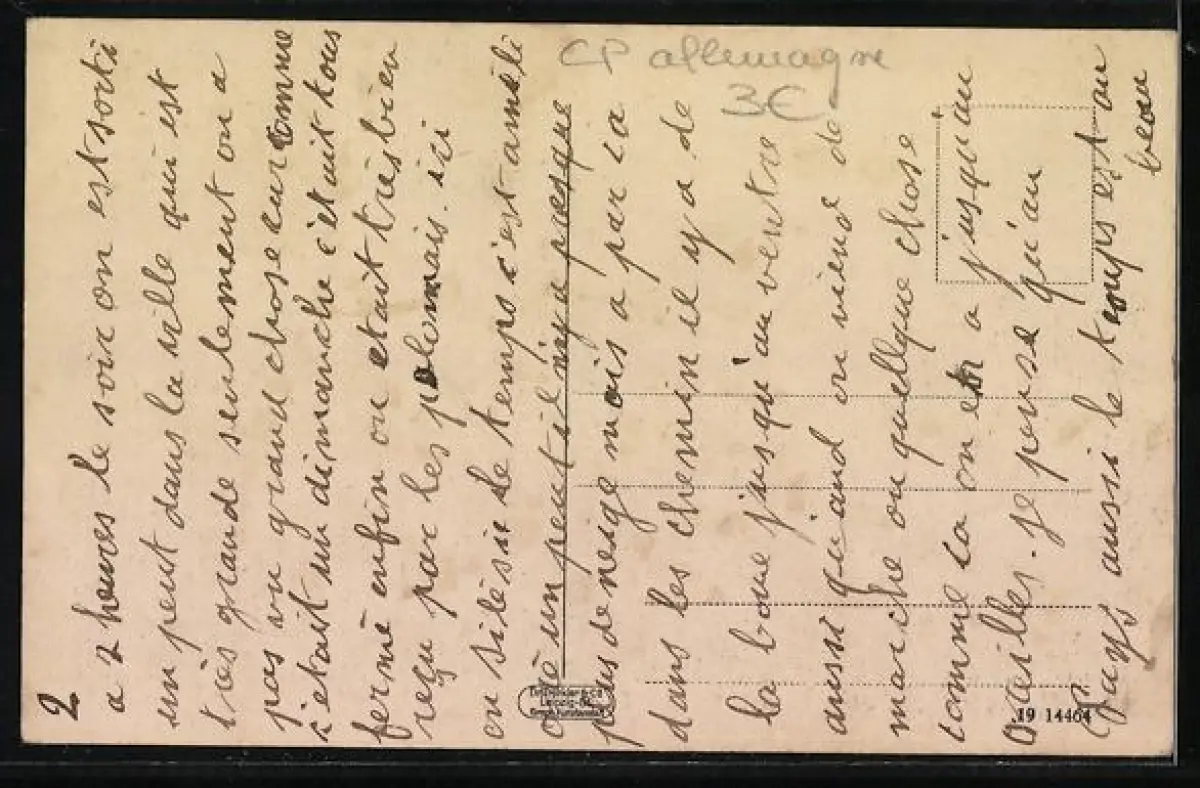 CP allemagne
3€
2
a 2 heures le soir on est sorti
un peut dans la ville qui est
très grande seulement on a
pas vu grand chose
c'etait un dimanche c'était tous
fermé enfin on etait très bien
reçu par les polonais. ici
en silésie le temps c'est
un peut il n'y a presque
plus de neige mais a par ca
dans les chemin il y a de
la boue jusqu'au ventre
aussi quand on viend de
marche ou quellque chose
comme ca on en a jusqu'au
Oreilles. je pense qu'au
Pays aussi le temps est au
beau
19 14464